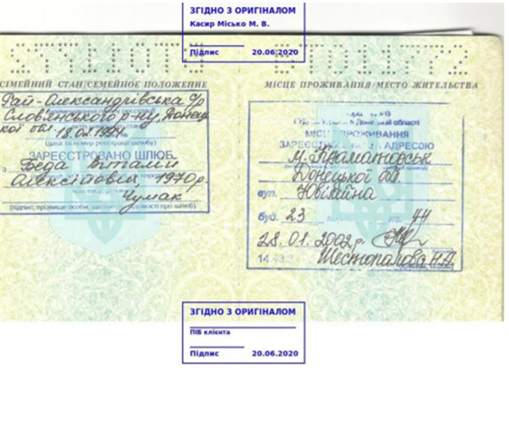 ЗГІДНО З ОРИГІНАЛОМ
Касир Місько М. В.
Підпис 20.06.2020
СІМЕЙНИЙ СТАН/СЕМЕЙНОЕ ПОЛОЖЕНИЕ
Рай-Олександрівська с/р
Слов'янського р-ну, Донец
кої обл. 18.02.1994.
ЗАРЕЄСТРОВАНО ШЛЮБ
Беда Віталій
Олексійович, 1970 р.
Чумак
МІСЦЕ ПРОЖИВАННЯ/МЕСТО ЖИТЕЛЬСТВА
Донецької області
МІСЦЕ ПРОЖИВАННЯ
ЗАРЕЄСТРОВАНО ЗА АДРЕСОЮ
м. Краматорськ
Донецької обл.
вул. Ювілейна
буд. 23 44
28.01.2002р.
Шестопалова Н.П.
ЗГІДНО З ОРИГІНАЛОМ
ПІБ клієнта
Підпис 20.06.2020